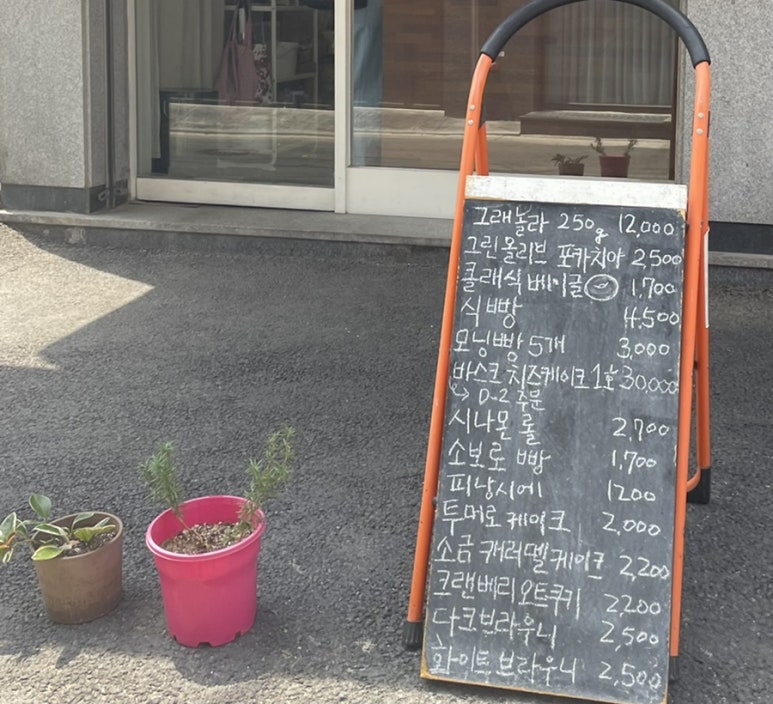 그래놀라 250g 12,000
그린올리브 포카치아 2,500
클래식 베이글 1,700
식빵 4,500
모닝빵 5개 3,000
바스크 치즈케이크 1호 30,000
↳ D-2 주문
시나몬 롤 2,700
소보로 빵 1,700
피낭시에 1200
투머로 케이크 2,000
소금 캐러멜케이크 2,200
크랜베리오트쿠키 2,200
다크브라우니 2,500
화이트 브라우니 2,500